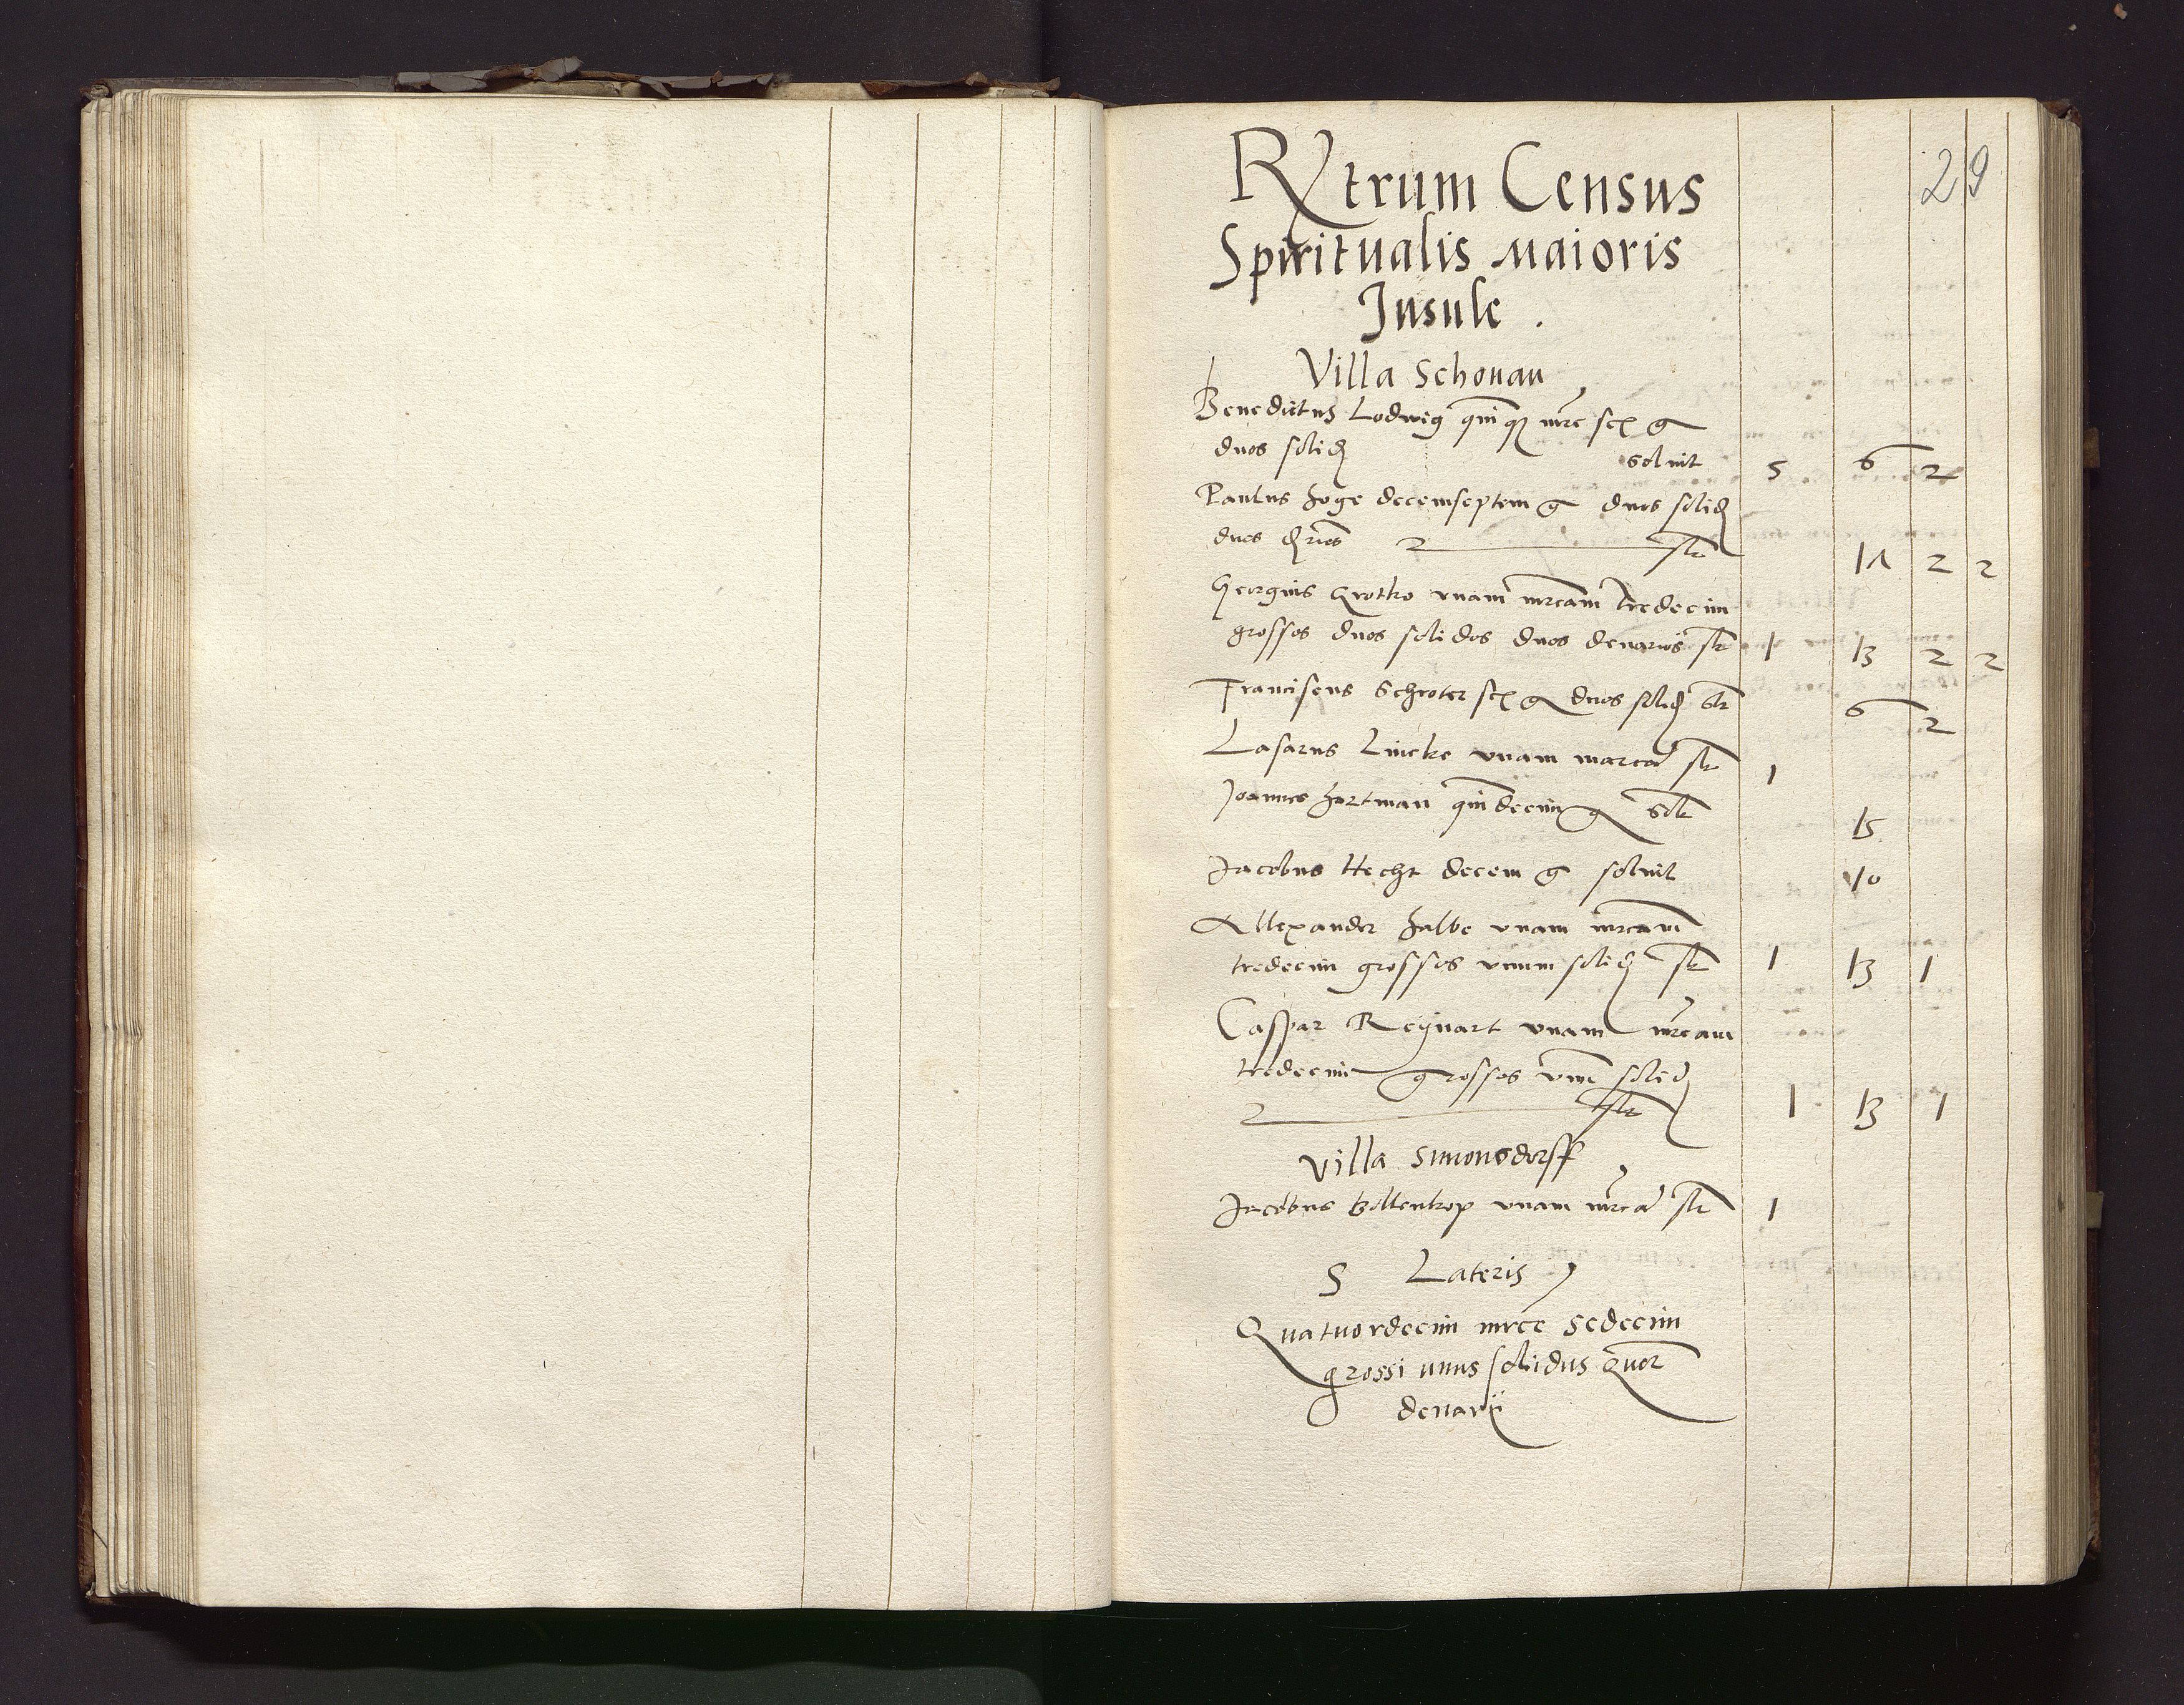 29
Rxtrum Census
Spiritualis Maioris
Insule .
Villa Schonau
Benedictus Lodwig quinq mrc sex g
duos solid soluit 5 6 2
Paulus Hoge decemseptem g duos solid
duos drios slt 17 2 2
Georgius Grotko vnam mrcam tredecim
grossos duos solidos duos denarios slt 1 13 2 2
Franciscus Schroter sex g duos solid slt 6 2
Lasarus Lincke vnam marca slt 1
Joannes Hartman quindecim g solt 15
Jacobus Hecht decem g soluit 10
Allexander Halbe vnam mrcam
tredecim grossos vnum solid slt 1 13 1
Caspar Reynart vnam mrcam
tredecim grossos vnu solid
slt 1 13 1
Villa Simonsdorff
Jacobus vnam mrca slt 1
S Lateris
Quatuordecim mrce sedecim
grossi unus solidus quor
denarii